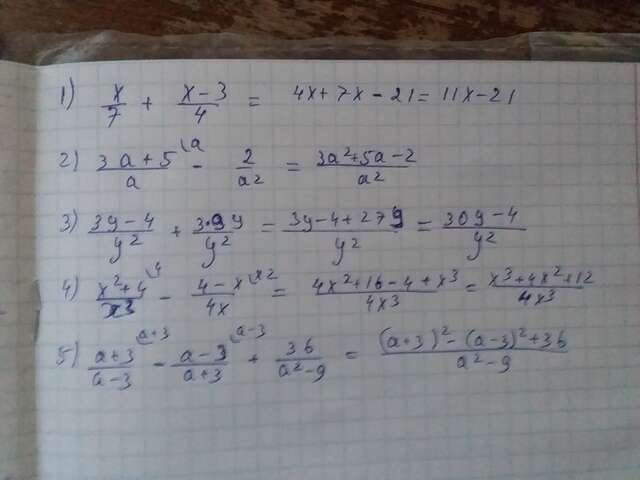 1) x/7 + x-3/4 = 4x+7x-21 = 11x-21
2) 3a+5\a/a - 2/a² = 3a²+5a-2/a²
3) 3y-4/y² + 3·9y/y² = 3y-4+27y/y² = 30y-4/y²
4) x²+4\4/x3 - 4-x\x2/4x = 4x²+16-4+x³/4x³ = x³+4x²+12/4x³
5) a+3\a+3/a-3 - a-3\a-3/a+3 + 36/a²-9 = (a+3)²-(a-3)²+36/a²-9